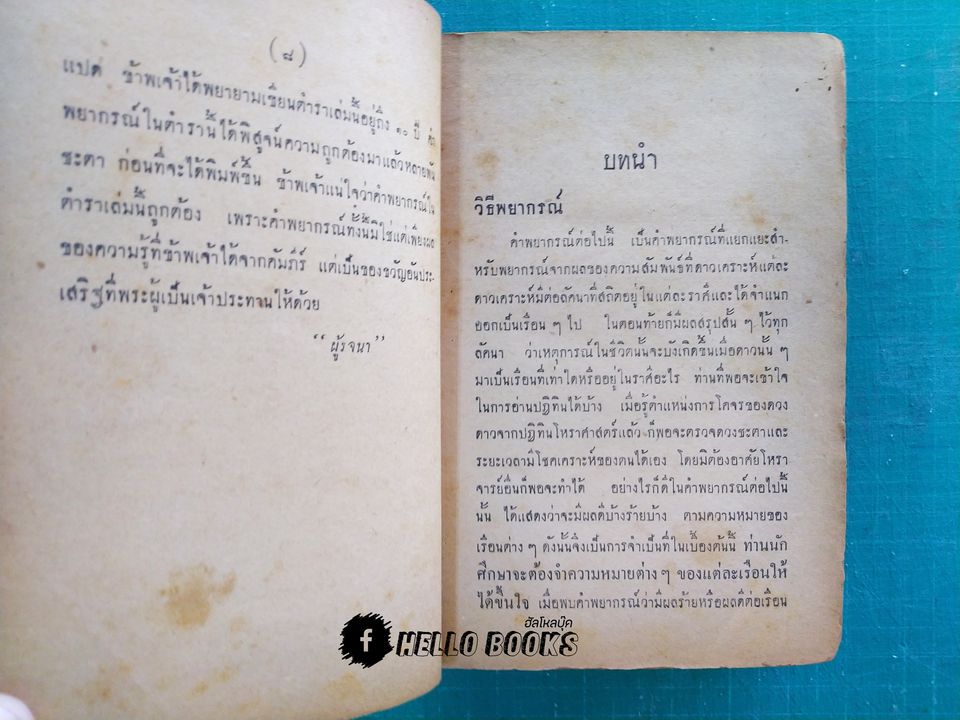 (๘)
แปด ข้าพเจ้าได้พยายามเขียนตำราเล่มนี้อยู่ถึง ๑๐ ปี คำ
พยากรณ์ในตำรานี้ได้พิสูจน์ความถูกต้องมาแล้วหลายพัน
ชะตา ก่อนที่จะได้พิมพ์ขึ้น ข้าพเจ้าแน่ใจว่าคำพยากรณ์ใน
ตำราเล่มนี้ถูกต้อง เพราะคำพยากรณ์ทั้งนี้มิใช่แต่เพียงผล
ของความรู้ที่ข้าพเจ้าได้จากคัมภีร์ แต่เป็นของขวัญอันประ-
เสริฐที่พระผู้เป็นเจ้าประทานให้ด้วย
“ผู้รจนา”
บทนำ
วิธีพยากรณ์
คำพยากรณ์ต่อไปนี้ เป็นคำพยากรณ์ที่แยกแยะสำ-
หรับพยากรณ์จากผลของความสัมพันธ์ที่ดาวเคราะห์แต่ละ
ดาวเคราะห์มีต่อลัคนาที่สถิตอยู่ในแต่ละราศีและได้จำแนก
ออกเป็นเรือน ๆ ไป ในตอนท้ายก็มีผลสรุปสั้น ๆ ไว้ทุก
ลัคนา ว่าเหตุการณ์ในชีวิตนั้นจะบังเกิดขึ้นเมื่อดาวนั้น ๆ
มาเป็นเรือนที่เท่าใดหรืออยู่ในราศีอะไร ท่านที่พอจะเข้าใจ
ในการอ่านปฏิทินได้บ้าง เมื่อรู้ตำแหน่งการโคจรของดวง
ดาวจากปฏิทินโหราศาสตร์แล้ว ก็พอจะตรวจดวงชะตาและ
ระยะเวลามีโชคเคราะห์ของตนได้เอง โดยมิต้องอาศัยโหรา
จารย์อื่นก็พอจะทำได้ อย่างไรก็ดีในคำพยากรณ์ต่อไปนี้
นั้น ได้แสดงว่าจะมีผลดีบ้างร้ายบ้าง ตามความหมายของ
เรือนต่าง ๆ ดังนั้นจึงเป็นการจำเป็นที่ในเบื้องต้นนี้ ท่านนัก
ศึกษาจะต้องจำความหมายต่าง ๆ ของแต่ละเรือนให้
ได้ขึ้นใจ เมื่อพบคำพยากรณ์ว่ามีผลร้ายหรือผลดีต่อเรือน
ฮัลโหลบุ๊ค
f HELLO BOOKS